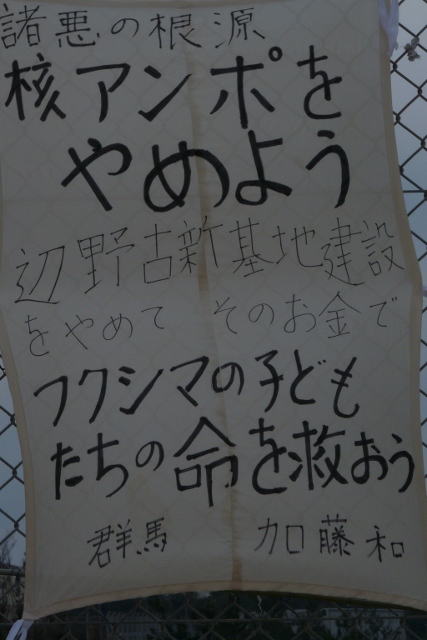 諸悪の根源
核アンポを
やめよう
辺野古新基地建設
をやめて そのお金で
フクシマの子ども
たちの命を救おう
群馬 加藤和